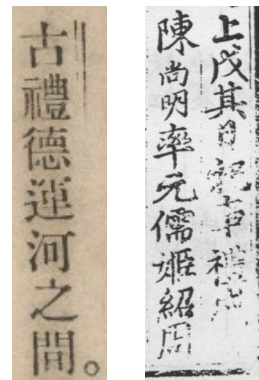 古禮德運河之間。
上戊其日祀
禮
陳尚明率元儒姬紹周